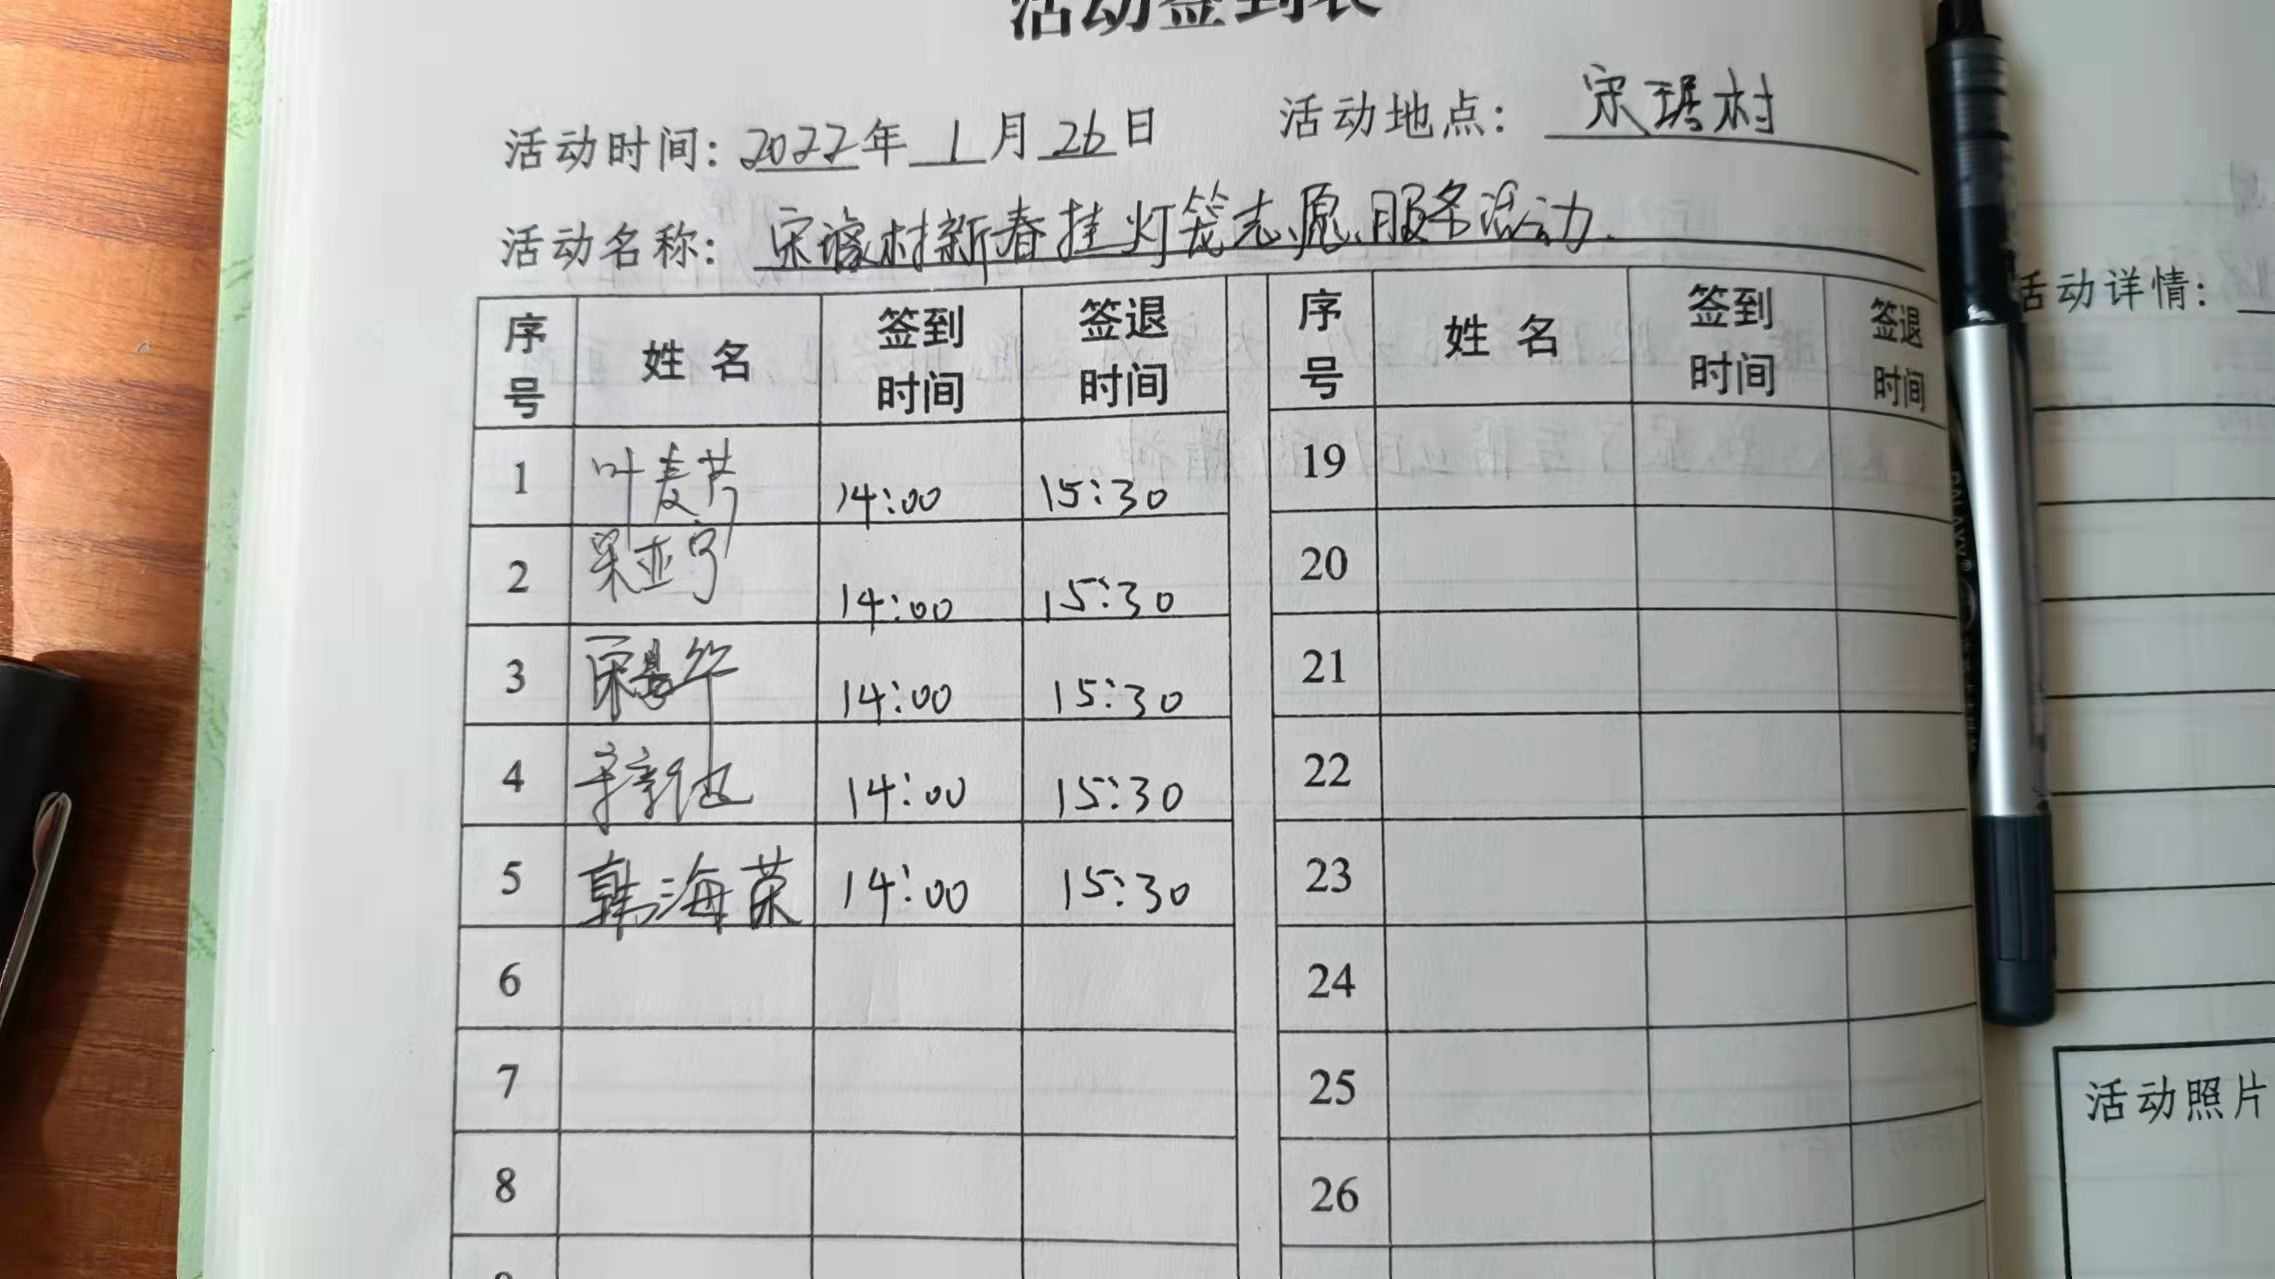 活动签到表
活动时间: 2022年 1 月 26 日 活动地点: 宋琚村
活动名称: 宋琚村新春挂灯笼志愿服务活动.
序号 姓名 签到时间 签退时间 序号 姓名 签到时间 签退时间
1 叶麦芹 14:00 15:30 19
2 宋亚宁 14:00 15:30 20
3 14:00 15:30 21
4 14:00 15:30 22
5 韩海荣 14:00 15:30 23
6 24
7 25
8 26
活动详情:
活动照片